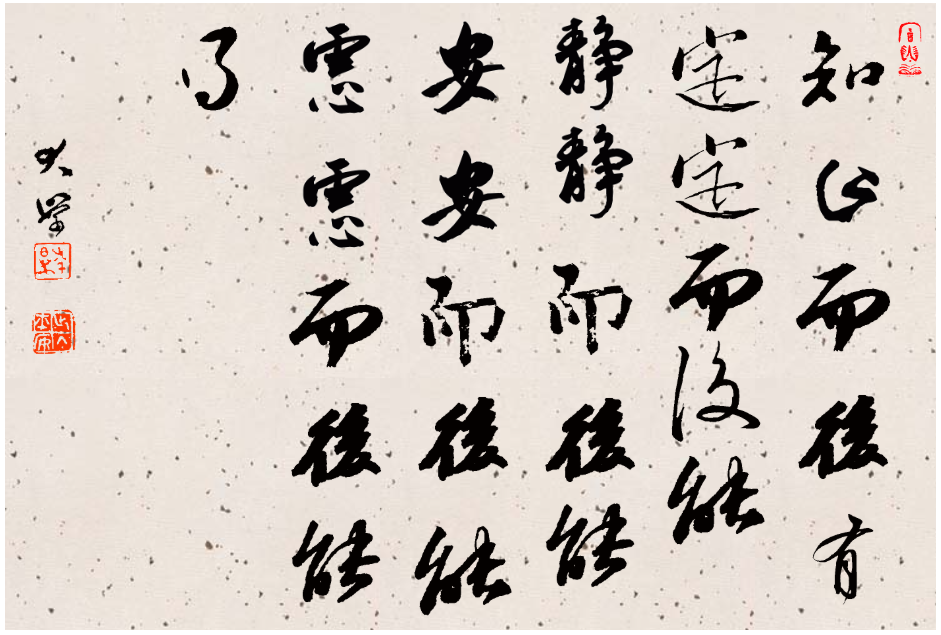 知止而後有
定定而後能
静静而後能
安安而後能
慮慮而後能
得
大学